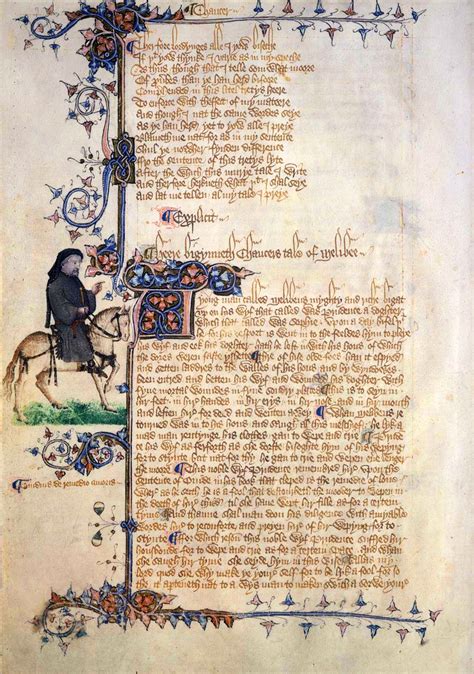 Chaucer
Therfore lordynges alle I yow biseche
If þt yow thynke I varie as in my speche
As thus though that I telle som what moore
Of prouerbes than ye han herd bifoore
Comprehended in this litel tretys heere
To enforce with theffect of my mateere
And though I nat the same wordes seye
As ye han herd yet to yow alle I preye
Blameth me nat for as in my sentence
Shul ye nowher fynden difference
Fro the sentence of this tretys lyte
After the which this murye tale I write
And therfore herkneth what þt I shal seye
And lat me tellen al my tale I preye
Explicit
Heere bigynneth Chaucers tale of Melibee
A yong man called Melibeus myghty and riche bigat
vp on his wyf that called was Prudence a doghter
which that called was Sophie Vpon a day bifel
þt he for his desport is went in to the feeldes hym to pleye
his wyf and eek his doghter hath he left in with his hous of which
the dores weren faste yshette thre of his olde foos han it espyed
and setten laddres to the walles of his hous and by wyndowes
been entred and betten his wyf and wounded his doghter with
fyue mortal woundes in fyue sondry places this is to seyn in hir
feet in hir handes in hir erys in hir nose and in hir mouth
and leften hir for deed and wenten awey Whan Melibeus re
torned was in to his hous and saugh al this meschief he lyk a
mad man rentynge his clothes gan to wepe and crie Prude
his wyf as ferforth as she dorste bisoghte hym of his wepyng
for to stynte but nat for thy he gan to crie and wepen euere lenger
the moore This noble wyf Prudence remembred hire vpon the
sentence of Ouide in his book that cleped is the remedie of loue
where as he seith he is a fool that destourbeth the mooder to wepen in
the deeth of hire child til she haue wept hir fille as for a certein
tyme and thanne shal man doon his diligence with amyable
wordes hire to reconforte and preyen hire of hir wepyng for to
stynte For which reson this noble wyf Prudence suffred hir
housbonde for to wepe and crie as for a certein space and whan
she saugh hir tyme she seyde hym in this wise Allas my
lord quod she why make ye your self for to be lyk a fool for so
the it aperteneth nat to a wys man to maken swich a sorwe your